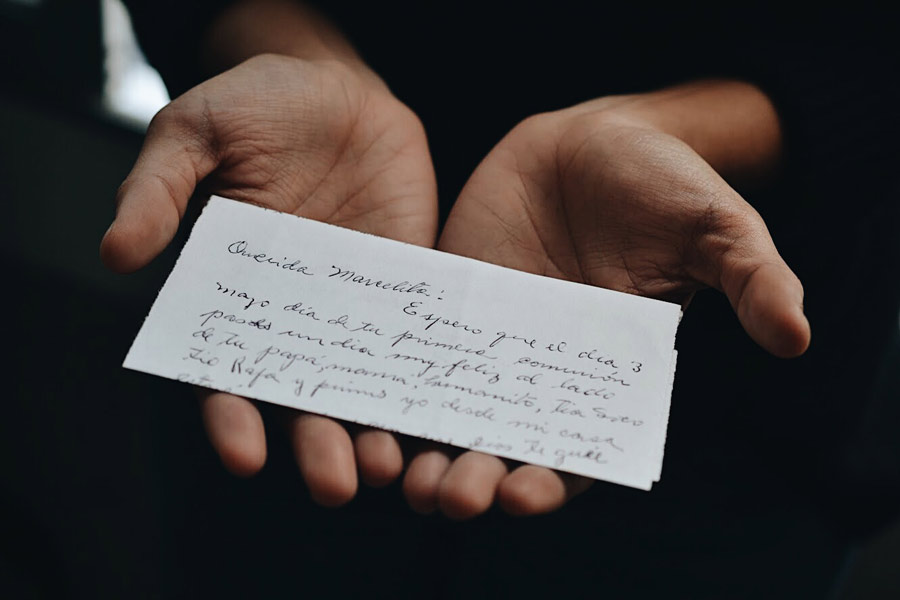 Querida Marcelita:
Espero que el día 3
mayo día de tu primera comunión
pases un día muy feliz al lado
de tu papá, mamá, hermanito, tía
tío Rafa y primos yo desde mi casa
que Dios te guíe